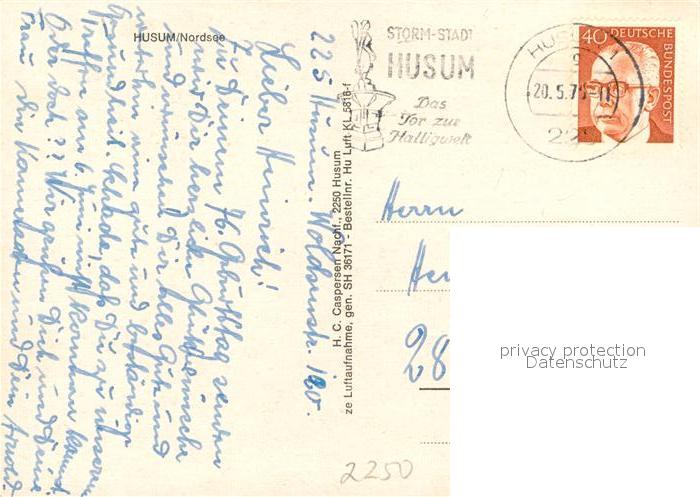 HUSUM/Nordsee
225 Husum. Woldsenstr. 120.
Lieber Heinrich!
Zu Deinem 76. Geburtstag senden
wir Dir herzliche Glückwünsche
und wünschen Dir alles Gute und
weiterhin eine gute und beständige
Gesundheit. Schade, daß Du zu unserm
Treffen am 6. Juni nicht kommen kannst.
Oder doch?? Wir grüßen Dich und Deine
Frau. Dein Kamerad und Dein Arnold.
H. C. Caspersen Nachf., 2250 Husum
ze Luftaufnahme, gen. SH 36171 - Bestellnr. Hu Luft KL 5818-f
STORM-STADT
HUSUM
Das
Tor zur
Halligwelt
HUSUM
20.5.7
225
40 DEUTSCHE
BUNDESPOST
Herrn
Hei
28
privacy protection
Datenschutz
2250